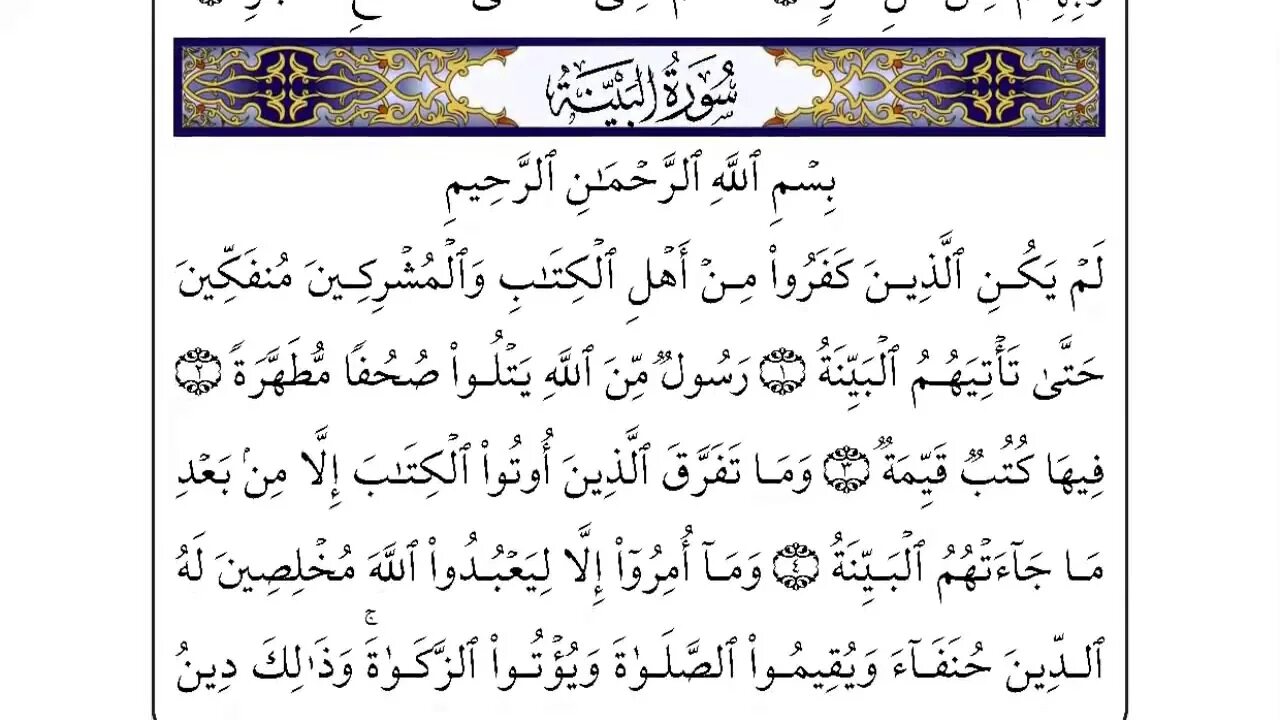 سُورَةُ الْبَيِّنَةُ
بِسۡمِ ٱللَّهِ ٱلرَّحۡمَـٰنِ ٱلرَّحِيمِ
لَمۡ يَكُنِ ٱلَّذِينَ كَفَرُوا۟ مِنۡ أَهۡلِ ٱلۡكِتَـٰبِ وَٱلۡمُشۡرِكِينَ مُنفَكِّينَ
حَتَّىٰ تَأۡتِيَهُمُ ٱلۡبَيِّنَةُ ١ رَسُولٌ مِّنَ ٱللَّهِ يَتۡلُوا۟ صُحُفًا مُّطَهَّرَةً ٢
فِيهَا كُتُبٌ قَيِّمَةٌ ٣ وَمَا تَفَرَّقَ ٱلَّذِينَ أُوتُوا۟ ٱلۡكِتَـٰبَ إِلَّا مِنۢ بَعۡدِ
مَا جَآءَتۡهُمُ ٱلۡبَيِّنَةُ ٤ وَمَآ أُمِرُوٓا۟ إِلَّا لِيَعۡبُدُوا۟ ٱللَّهَ مُخۡلِصِينَ لَهُ
ٱلدِّينَ حُنَفَآءَ وَيُقِيمُوا۟ ٱلصَّلَوٰةَ وَيُؤۡتُوا۟ ٱلزَّكَوٰةَۚ وَذَٰلِكَ دِينُ